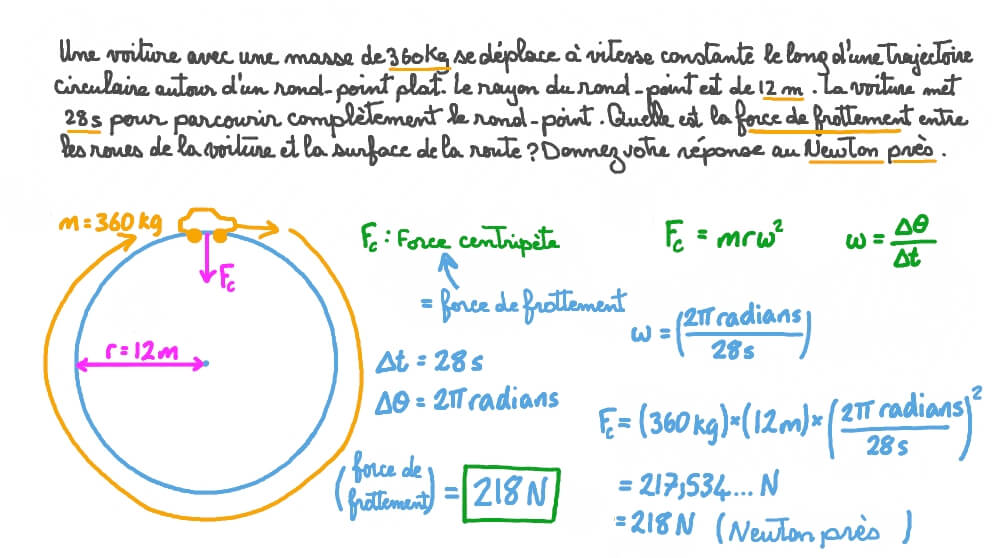 Une voiture avec une masse de 360kg se déplace à vitesse constante le long d'une trajectoire
circulaire autour d'un rond-point plat. Le rayon du rond-point est de 12 m. La voiture met
28 s pour parcourir complètement le rond-point. Quelle est la force de frottement entre
les roues de la voiture et la surface de la route ? Donnez votre réponse au Newton près.
m = 360 kg
Fc
r = 12 m
Fc : Force centripète
= force de frottement
Δt = 28 s
Δθ = 2π radians
(force de frottement) = 218 N
Fc = mrω²
ω = Δθ/Δt
ω = (2π radians/28 s)
Fc = (360 kg)×(12 m)×(2π radians/28 s)²
= 217,534... N
= 218 N (Newton près)